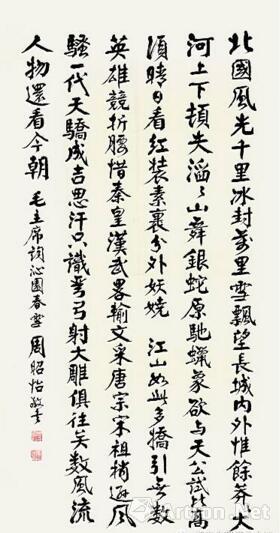 北國風光千里冰封萬里雪飄望長城內外惟餘莽大
河上下頓失滔〻山舞銀蛇原馳蠟象欲与天公試比高
須晴日看紅裝素裹分外妖嬈 江山如此多嬌引無數
英雄競折腰惜秦皇漢武畧輸文采唐宗宋祖稍遜風
騷一代天驕成吉思汗只識彎弓射大雕俱往矣數風流
人物還看今朝 毛主席詞沁園春雪 周昭怡敬書